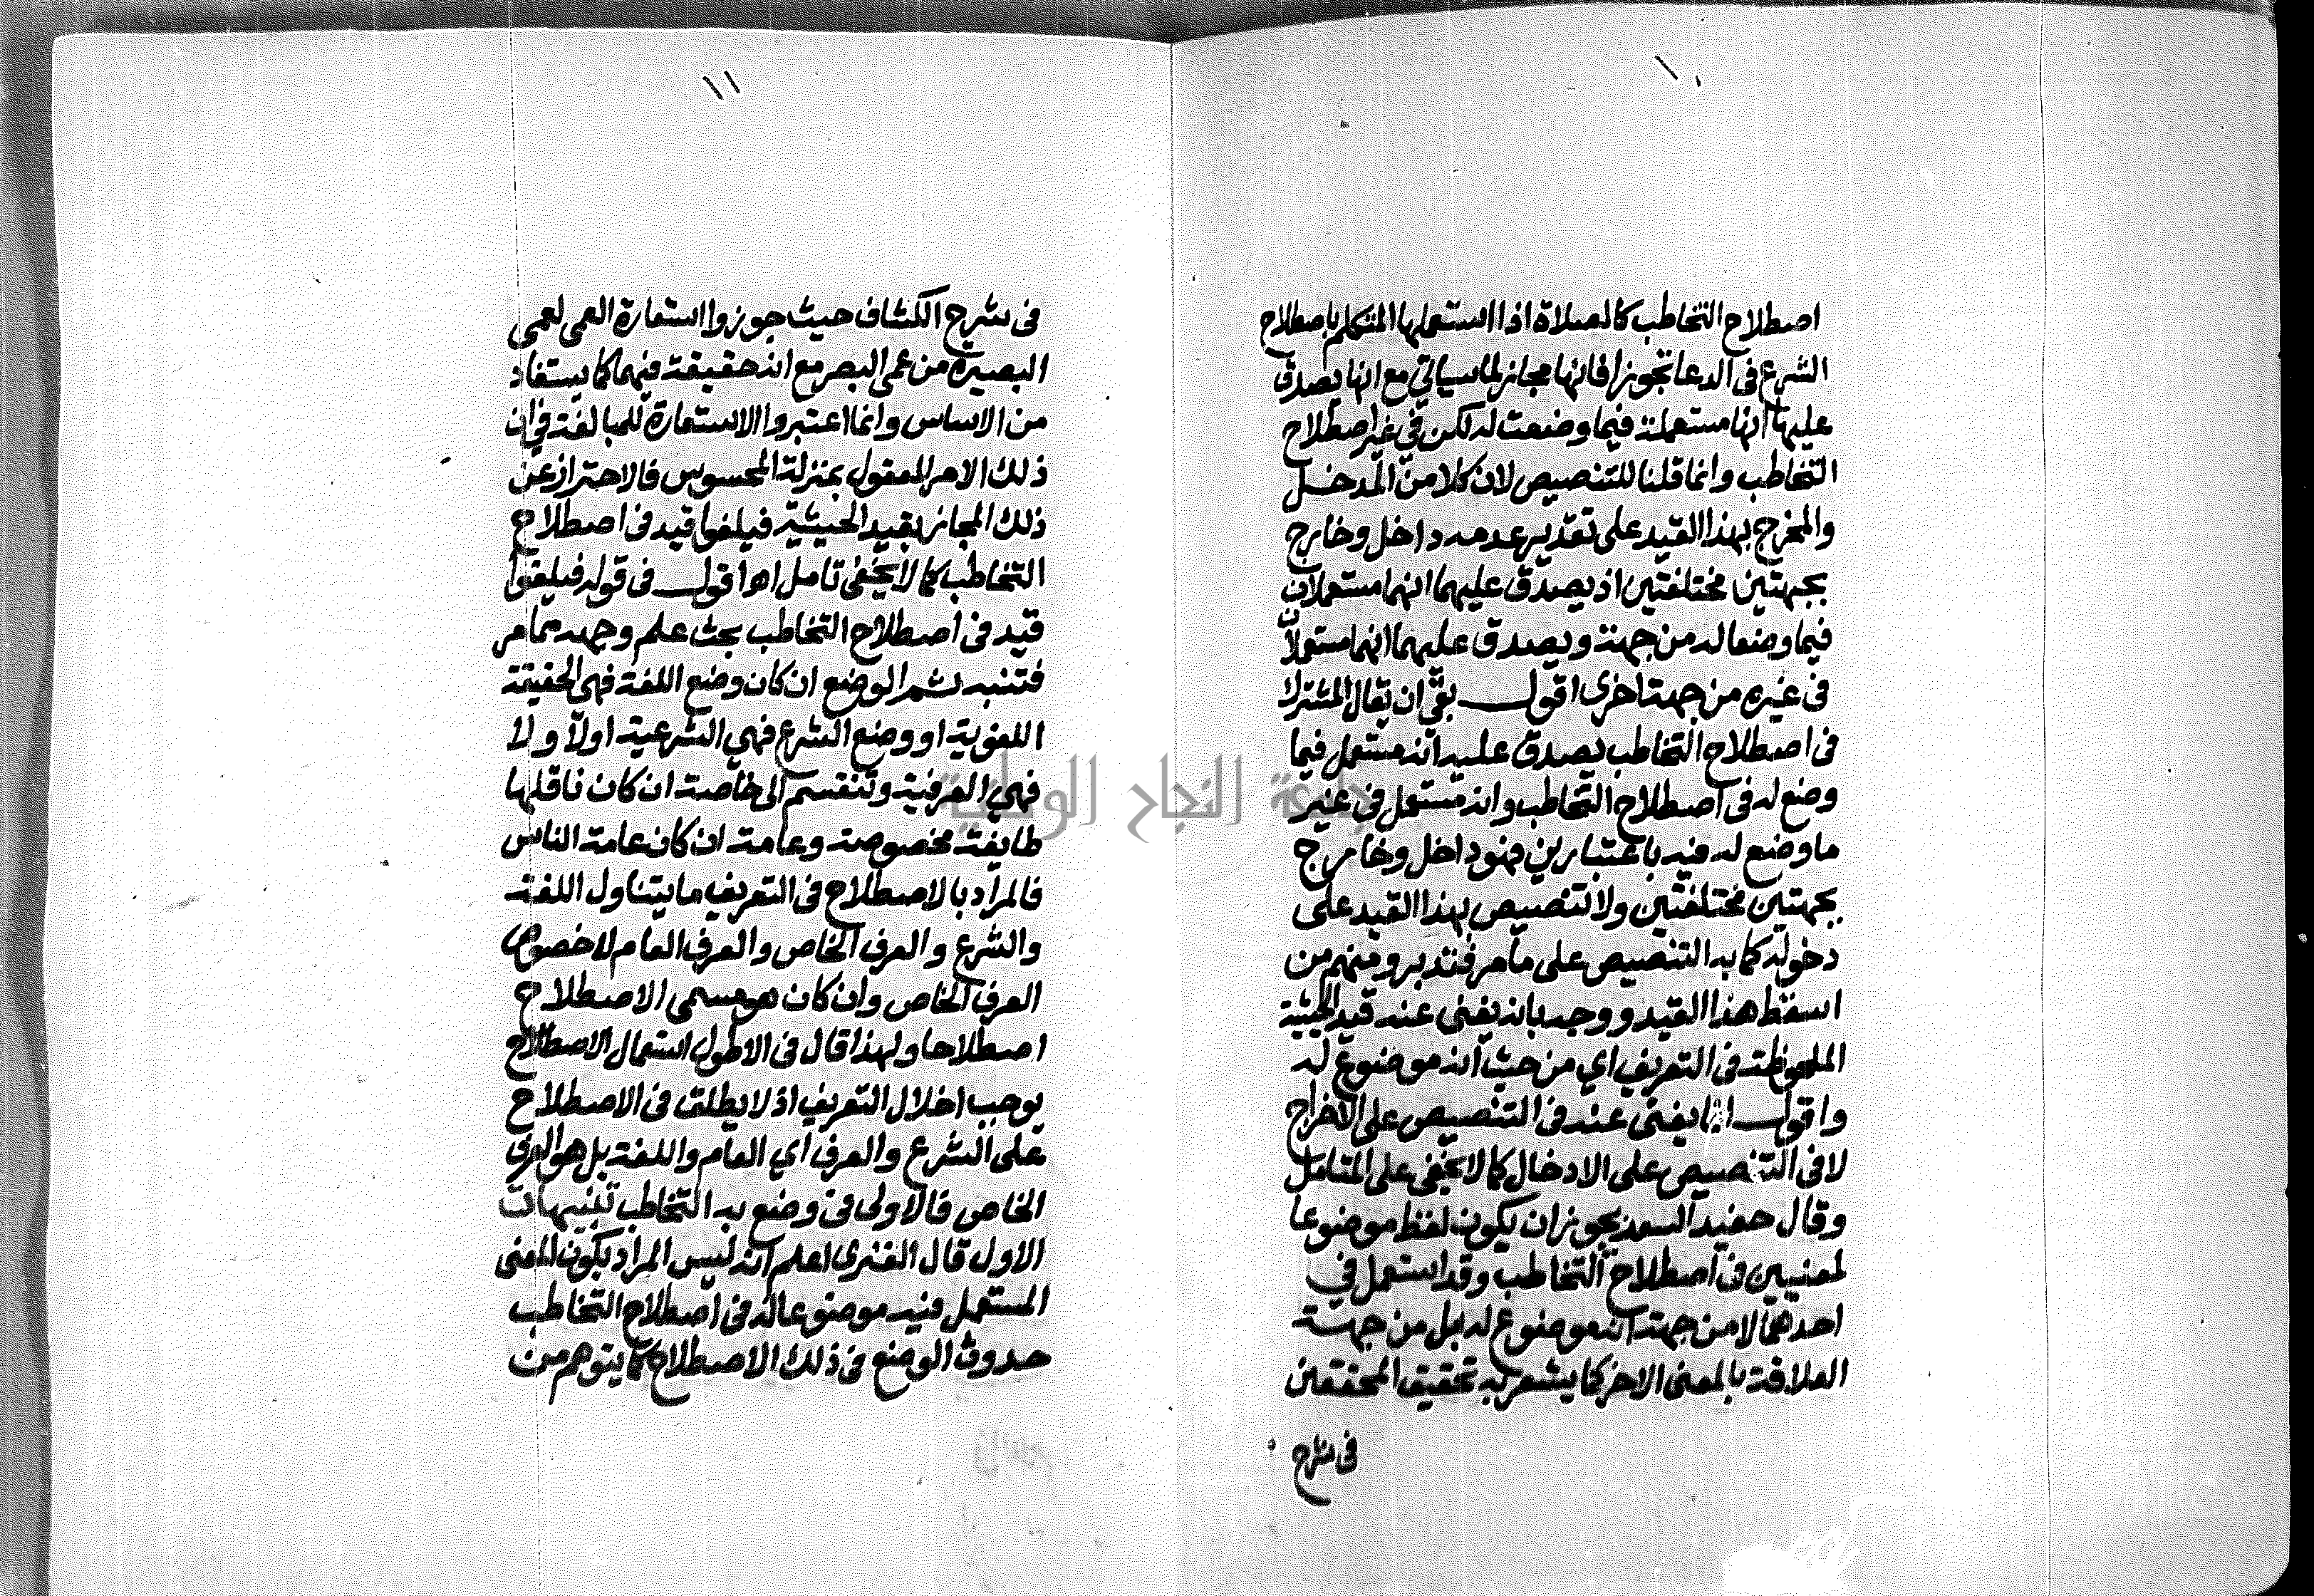 ١٠
اصطلاح التخاطب كالصلاة اذا استعملها المتكلم باصطلاح
الشرع فى الدعا تجوزا فانها مجاز لما سياتي مع انها يصدق
عليها انها مستعملة فيما وضعت له لكن في غير اصطلاح
التخاطب وانما قلنا للتنصيص لان كلا من المدخل
والمخرج بهذا القيد على تقدير عدمه داخل وخارج
بجهتين مختلفتين اذ يصدق عليهما انهما مستعملان
فيما وضعا له من جهة ويصدق عليهما انهما مستعملان
فى غيره من جهة اخرى اقول بقى ان يقال المشترك
فى اصطلاح التخاطب يصدق عليه انه مستعمل فيما
وضع له فى اصطلاح التخاطب وانه مستعمل فى غير
ما وضع له فيه باعتبارين فهو داخل وخارج
بجهتين مختلفتين ولا تنصيص بهذا القيد على
دخوله كما به التنصيص على ما مر فتدبر ومنهم من
اسقط هذا القيد ووجه بانه يغنى عنه قيد الحيثية
الملحوظة فى التعريف اي من حيث انه موضوع له
واقول انما يغنى عنه فى التنصيص على الاخراج
لا فى التنصيص على الادخال كما لا يخفى على المتامل
وقال حفيد السعد يجوز ان يكون لفظ موضوعا
لمعنيين فى اصطلاح التخاطب وقد استعمل في
احدهما لا من جهة انه موضوع له بل من جهة
العلاقة بالمعنى الاخر كما يشعر به تحقيق المحققين
فى شرح
١١
فى شرح الكشاف حيث جوزوا استعارة العمى لعمى
البصيرة من عمى البصر مع انه حقيقة فيهما كما يستفاد
من الاساس وانما اعتبروا الاستعارة للمبالغة في ان
ذلك الامر المعقول بمنزلة المحسوس فالاحتراز عن
ذلك المجاز بقيد الحيثية فيلغوا قيد فى اصطلاح
التخاطب كما لا يخفى تامل اه اقول فى قوله فيلغوا
قيد فى اصطلاح التخاطب بحث علم وجهه مما مر
فتنبه ثم الوضع ان كان وضع اللغة فهى الحقيقة
اللغوية او وضع الشرع فهي الشرعية اولا ولا
فهي العرفية وتنقسم الى خاصة ان كان ناقلها
طايفة مخصوصة وعامة ان كان عامة الناس
فالمراد بالاصطلاح فى التعريف ما يتناول اللغة
والشرع والعرف الخاص والعرف العام لا خصوص
العرف الخاص وان كان هو مسمى الاصطلاح
اصطلاحا ولهذا قال فى الاطول استعمال الاصطلاح
يوجب اخلال التعريف اذ لا يطلق فى الاصطلاح
على الشرع والعرف اي العام واللغة بل هو العرف
الخاص فالاولى فى وضع به التخاطب تنبيهات
الاول قال الفنرى اعلم انه ليس المراد بكون المعنى
المستعمل فيه موضوعا له فى اصطلاح التخاطب
حدوث الوضع فى ذلك الاصطلاح كما يتوهم من
جامعة النجاح الوطنية